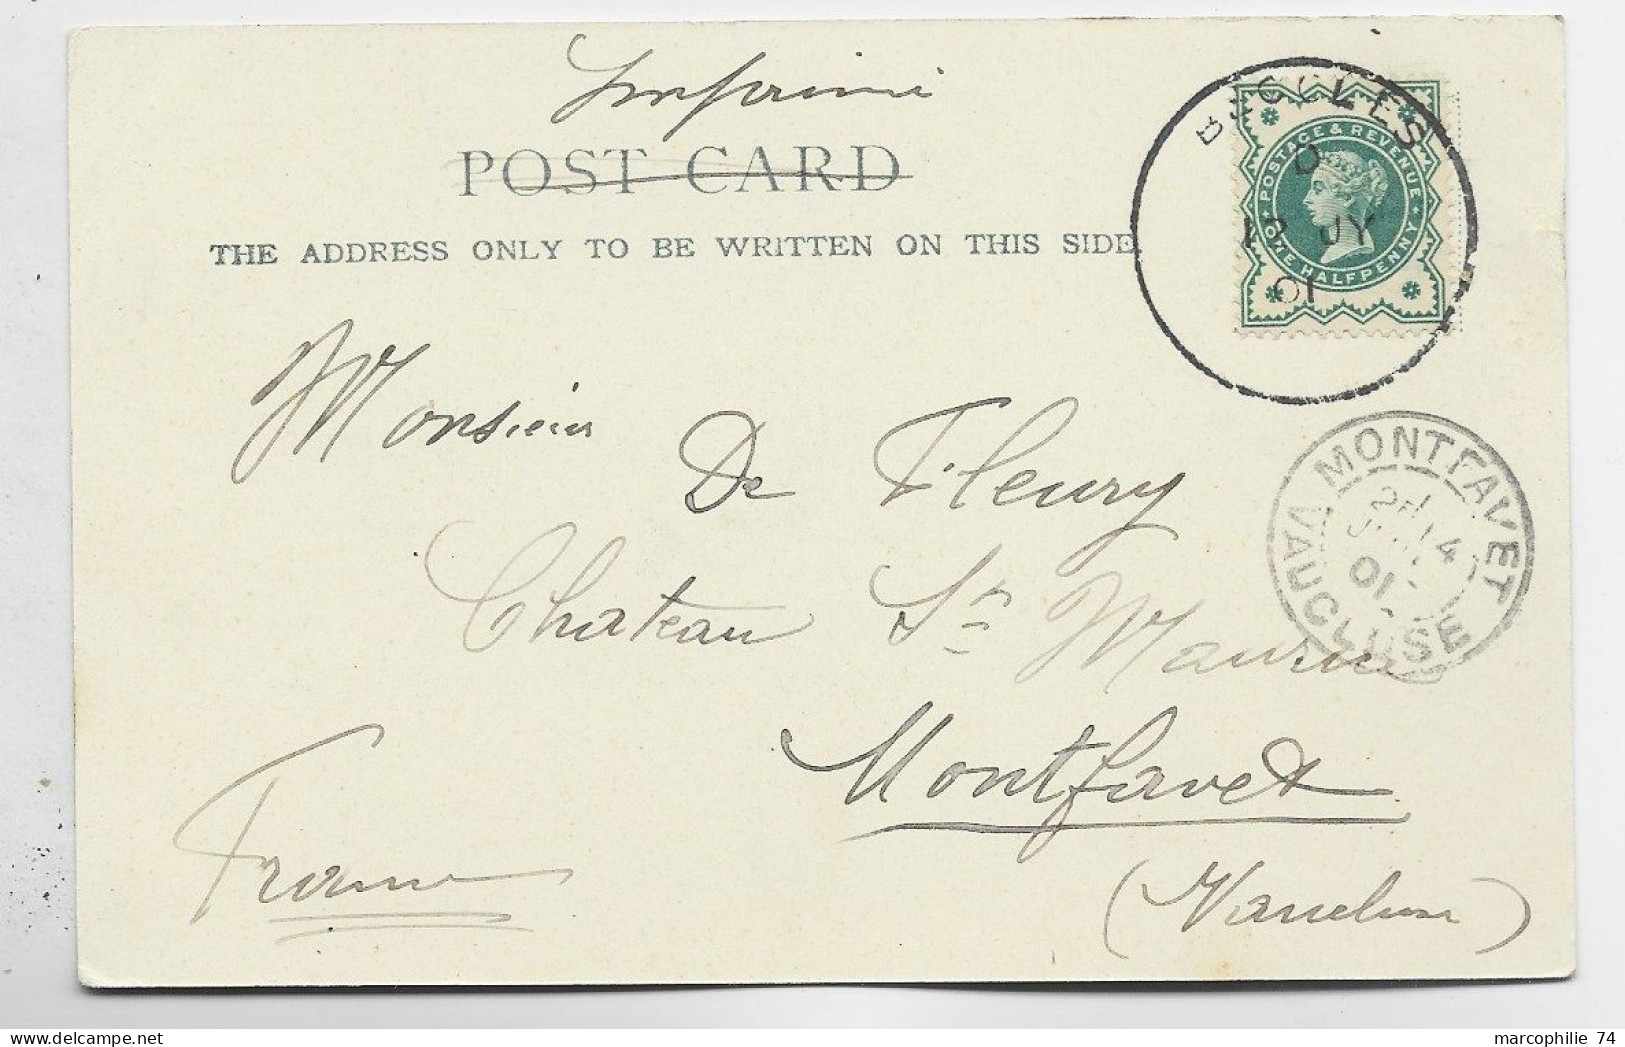 Imprimé
POST CARD
THE ADDRESS ONLY TO BE WRITTEN ON THIS SIDE.
BECCLES
D
JY
01
POSTAGE & REVENUE
ONE HALFPENNY
Monsieur De Fleury
Chateau St Maurice
Montfavet
(Vaucluse)
France
MONTFAVET
14
01
VAUCLUSE
marcophilie 74